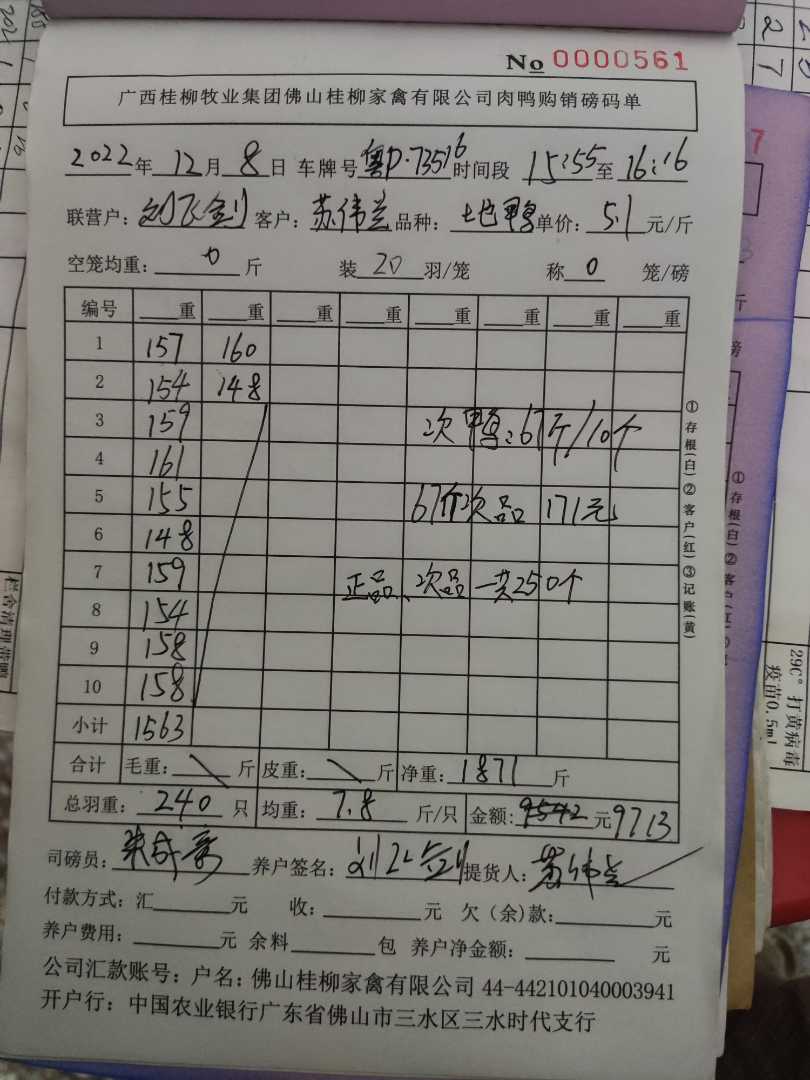 No 0000561
广西桂柳牧业集团佛山桂柳家禽有限公司肉鸭购销磅码单
2022年 12月 8日 车牌号 粤P·73516 时间段 15:55至16:16
联营户：刘飞剑 客户：苏伟兰 品种：土地鸭 单价：5.1元/斤
空笼均重：0斤 装20羽/笼 称0笼/磅
编号 重 重 重 重 重 重 重 重
1 157 160
2 154 148
3 159 次鸭：67斤/10个
4 161
5 155 67斤次品 171元
6 148
7 159 正品、次品一共250个
8 154
9 158
10 158
小计 1563
合计 毛重： 斤 皮重： 斤 净重：1871斤
总羽重：240只 均重：7.8斤/只 金额：9542元9713
司磅员： 养户签名：刘飞剑 提货人：苏伟兰
付款方式：汇 元 收： 元 欠（余）款： 元
养户费用： 元 余料 包 养户净金额： 元
公司汇款账号：户名：佛山桂柳家禽有限公司 44-442101040003941
开户行：中国农业银行广东省佛山市三水区三水时代支行
①存根(白)②客户(红)③记账(黄)
29C°打黄病毒
疫苗0.5ml